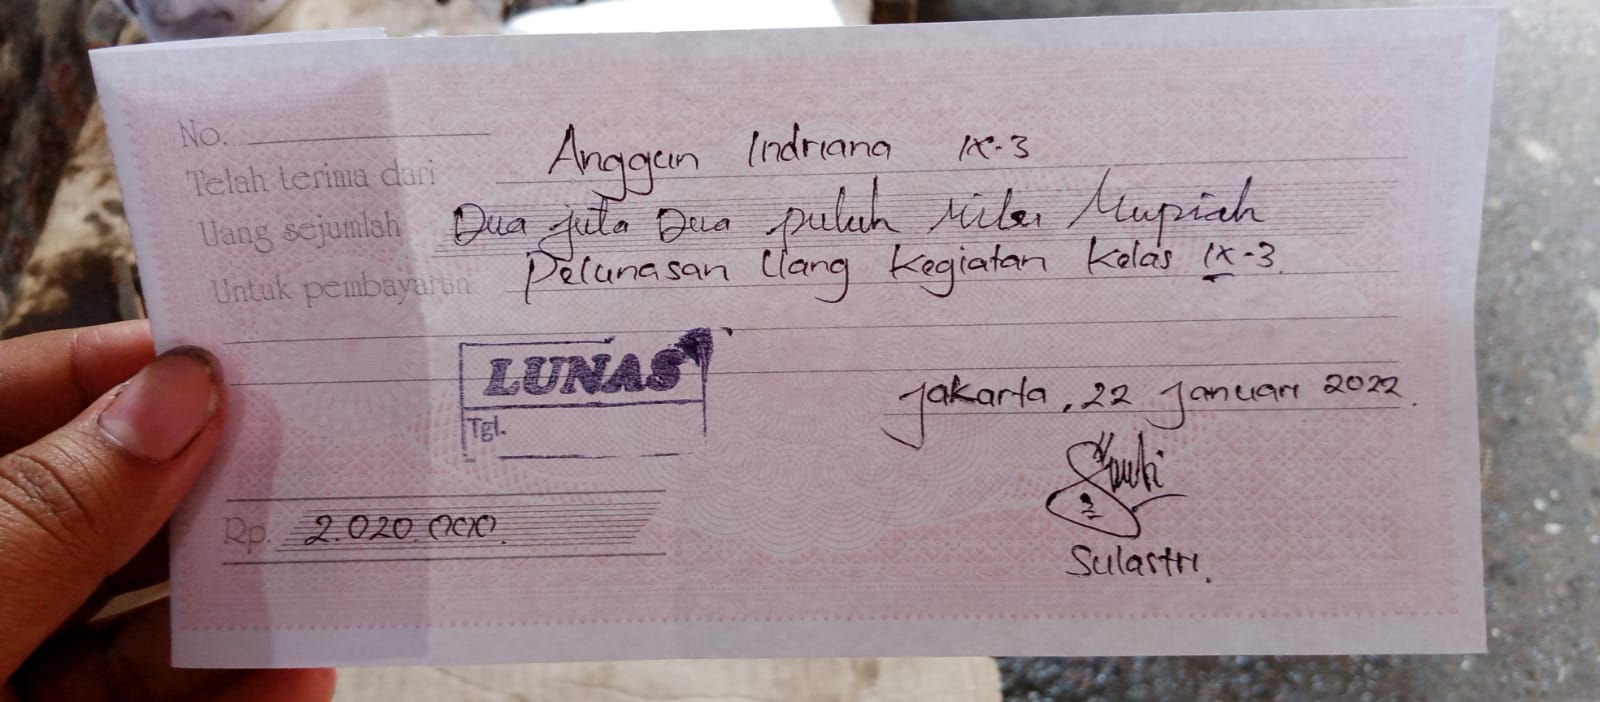 No.
Telah terima dari Anggun Indriana IX-3
Uang sejumlah Dua juta Dua puluh Ribu Rupiah
Untuk pembayaran Pelunasan Uang Kegiatan Kelas IX-3.
LUNAS
Tgl.
Jakarta, 22 Januari 2022.
Rp. 2.020.000.
Sulastri.